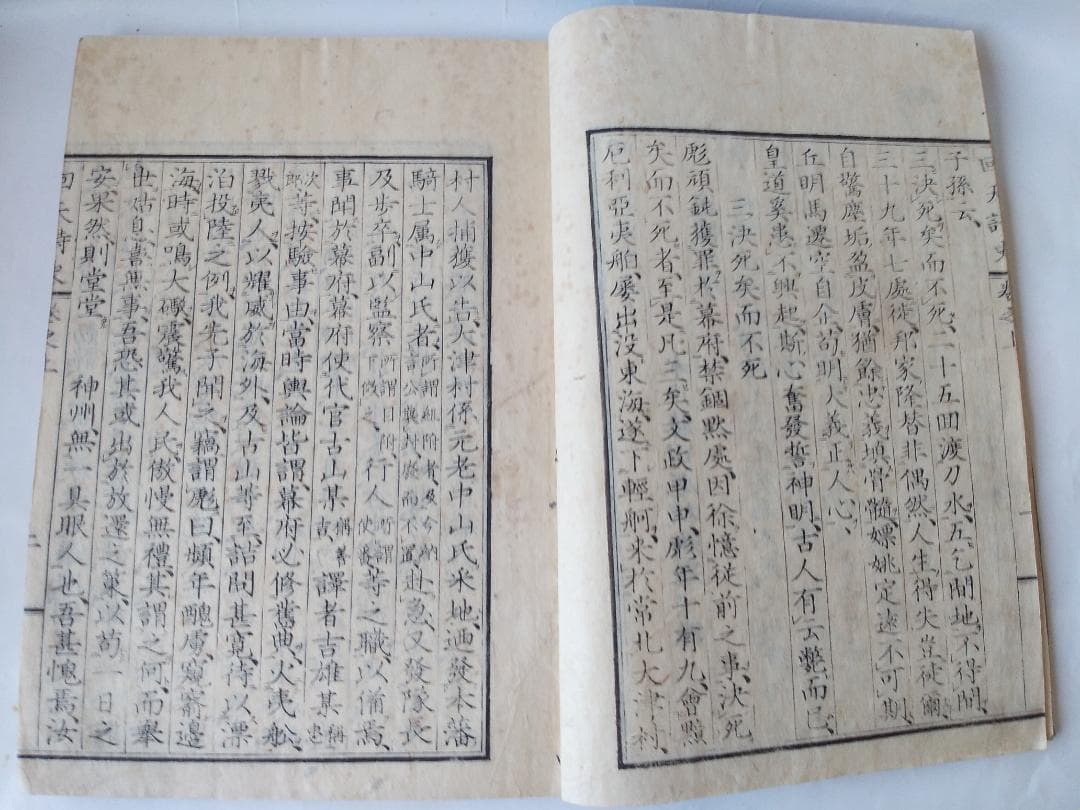 回天詩史 卷之上
子孫云、
三決死矣而不死、二十五回渡刀水、五乞閒地不得閒、
三十九年七處徙、邦家隆替非偶然、人生得失豈徒爾、
自驚塵垢盈皮膚、猶餘忠義塡骨髓、嫖姚定遠不可期、
丘明馬遷空自企、苟明大義正人心、
皇道奚患不興起、斯心奮發誓神明、古人有云斃而已、
三決死矣而不死
彪頑鈍獲罪於幕府、禁錮默處、因徐憶從前之事、決死
矣而不死者、至是凡三矣、文政甲申、彪年十有九、會黯
厄利亞夷舶、屢出没東海、遂下輕舸、來於常北大津村、
村人捕獲以告、大津村係元老中山氏采地、迺發本藩
騎士属中山氏者、所謂組附者、及今納言公襲封廢而不置、赴急、又發隊長
及步卒、副以監察所謂目附下倣之、行人所謂使番等之職、以備焉、
事聞於幕府、幕府使代官古山某稱善吉、譯者吉雄某稱忠
次郎等、按驗事由、當時輿論皆謂、幕府必修舊典、火夷舩、
戮夷人、以耀威於海外、及古山等至、詰問甚寬、待以漂
泊投陸之例、我先子聞之、竊謂彪曰、頻年醜虜、窺窬邊
海、時或鳴大礮、震驚我人民、傲慢無禮、其謂之何、而舉
世姑息、喜無事、吾恐其或出於放還之策、以苟一日之
安、果然則堂堂 神州無一具眼人也、吾甚愧焉、汝
回天詩史 卷之上 二